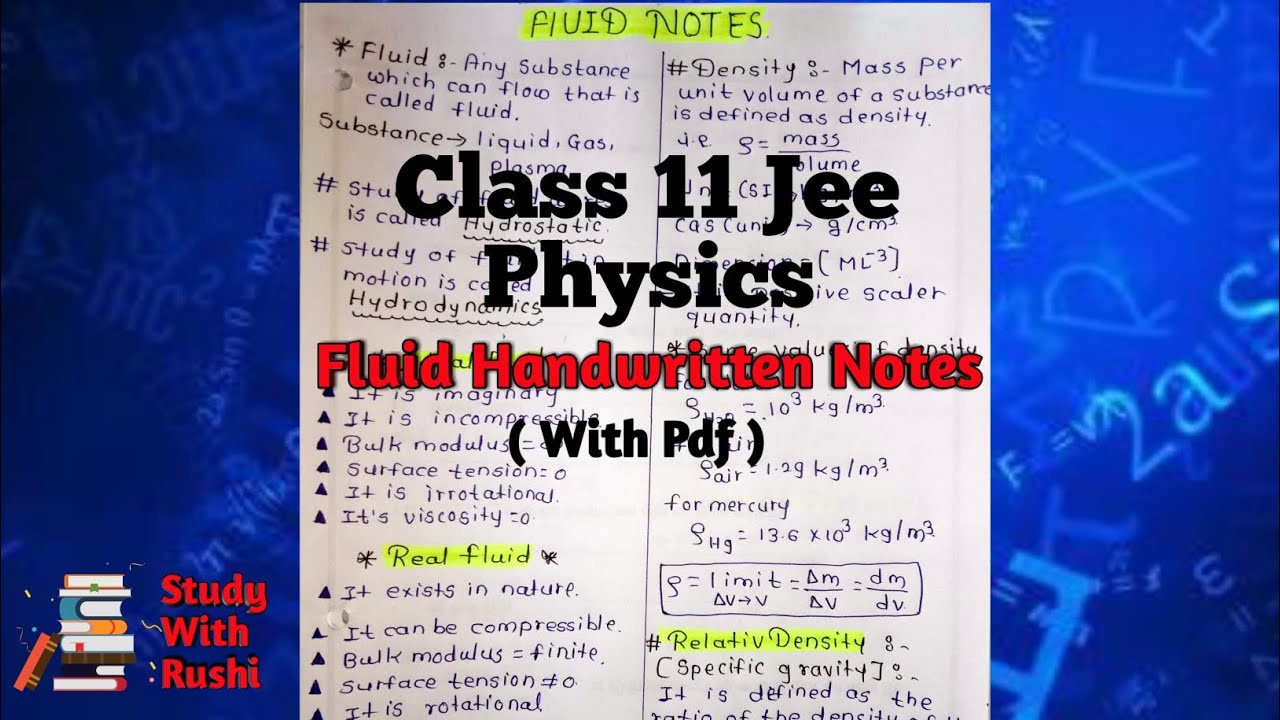 FlUID NOTES.
* Fluid :- Any substance
which can flow that is
called fluid.
Substance → liquid, Gas,
plasma
# Study of
is called Hydrostatic.
# Study of in
motion is called
Hydrodynamics
▲ It is imaginary
▲ It is incompressible
▲ Bulk modulus =
▲ Surface tension = 0
▲ It is irrotational.
▲ It's viscosity = 0.
* Real fluid *
▲ It exists in nature.
▲ It can be compressible.
▲ Bulk modulus = finite.
▲ Surface tension ≠ 0
▲ It is rotational.
# Density :- Mass per
unit volume of a substance
is defined as density.
i.e ρ = mass
volume
CGS (unit → g/cm³
= [ML⁻³]
scaler
quantity.
* value of density
= 10³ kg/m³
ρair = 1.29 kg/m³.
for mercury
ρHg = 13.6 × 10³ kg/m³.
ρ = limit = Δm = dm
ΔV→V ΔV dv
# Relativ Density :-
[Specific gravity] :-
It is defined as the
ratio of the density of
Class 11 Jee
Physics
Fluid Handwritten Notes
( With Pdf )
Study
With
Rushi